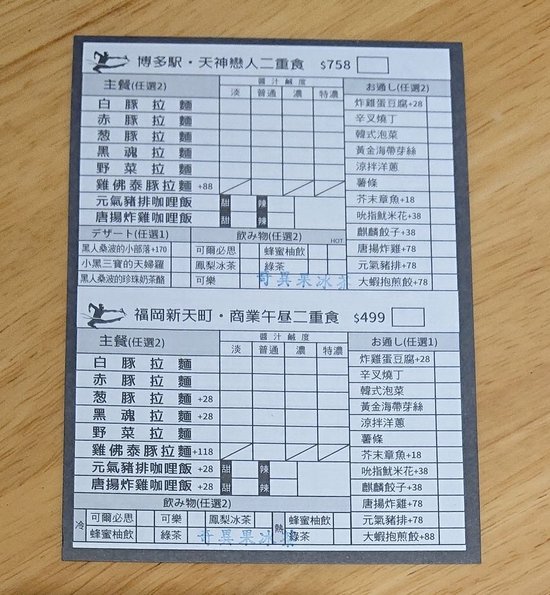 博多駅・天神戀人二重食 $758
主餐(任選2) 醬汁鹹度 お通し(任選2)
淡 普通 濃 特濃
白豚拉麵
赤豚拉麵
葱豚拉麵
黑魂拉麵
野菜拉麵
雞佛泰豚拉麵+88
元氣豬排咖哩飯 甜 辣
唐揚炸雞咖哩飯 甜 辣
炸雞蛋豆腐+28
辛叉燒丁
韓式泡菜
黃金海帶芽絲
涼拌洋蔥
薯條
芥末章魚+18
吮指魷米花+38
麒麟餃子+38
唐揚炸雞+78
元氣豬排+78
大蝦抱煎餃+78
デザート(任選1) 飲み物(任選2) HOT
黑人桑波的小部落+170 可爾必思 蜂蜜柚飲
小黑三寶的天婦羅 鳳梨冰茶 綠茶
黑人桑波的珍珠奶茶酪 可樂 奇異果冰茶
福岡新天町・商業午昼二重食 $499
主餐(任選2) 醬汁鹹度 お通し(任選1)
淡 普通 濃 特濃
白豚拉麵
赤豚拉麵
葱豚拉麵+28
黑魂拉麵+28
野菜拉麵
雞佛泰豚拉麵+118
元氣豬排咖哩飯+28 甜 辣
唐揚炸雞咖哩飯+28 甜 辣
炸雞蛋豆腐+28
辛叉燒丁
韓式泡菜
黃金海帶芽絲
涼拌洋蔥
薯條
芥末章魚+18
吮指魷米花+38
麒麟餃子+38
唐揚炸雞+78
元氣豬排+78
大蝦抱煎餃+88
飲み物(任選2)
冷 可爾必思 可樂 鳳梨冰茶 熱 蜂蜜柚飲
蜂蜜柚飲 綠茶 奇異果冰茶 綠茶